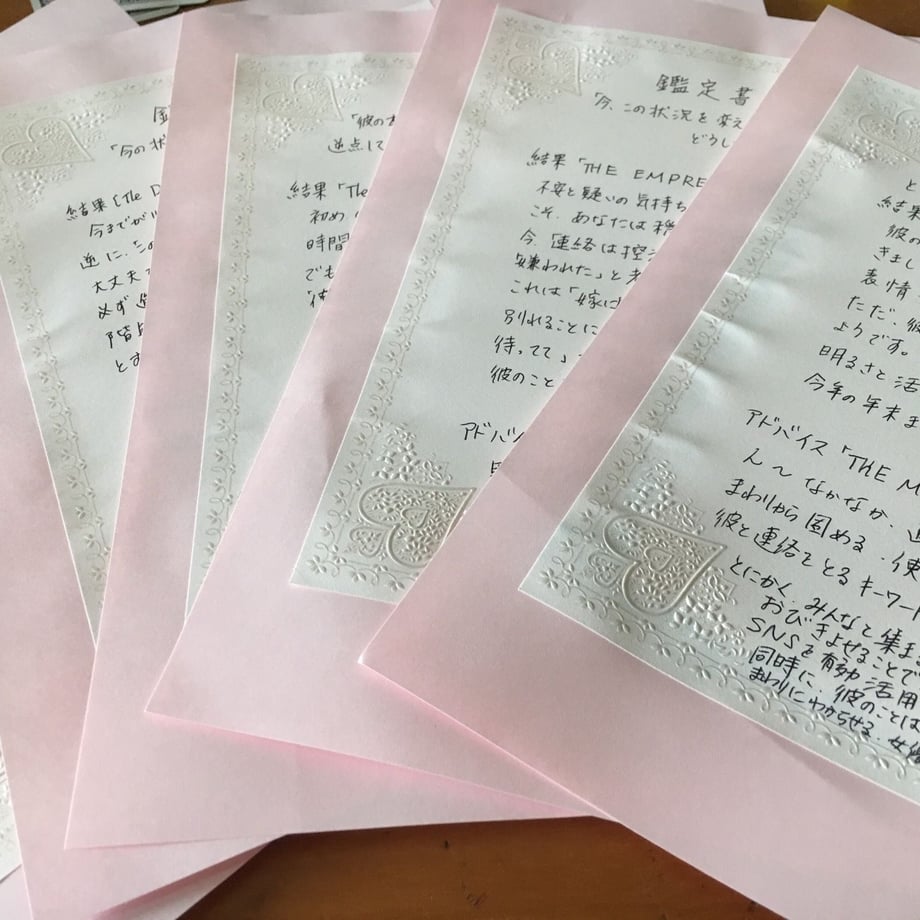 「今の状
結果「The D
今までが
逆に、この
大丈夫で
必ず
階段
「彼の
逆点して
結果「The
初め
時間
でも
鑑定書
「今、この状況を変え
どうし
結果「THE EMPRE
不安と疑いの気持ち
こそ、あなたは
今、連絡は控え
嫌われた」と
これは「嫁に
別れることに
待ってて」
彼のこと
アドバイ
と
結果
彼の
きまし
表情
ただ、彼
ようです。
明るさと活
今年の年末ま
アドバイス「THE M
んでなかなか、
まわりから固める。使
彼と連絡をとるキーワード
とにかく、みんなと集ま
おびきよせることで
SNSを有効活用
同時に、彼のことは
まわりにわからせる。女